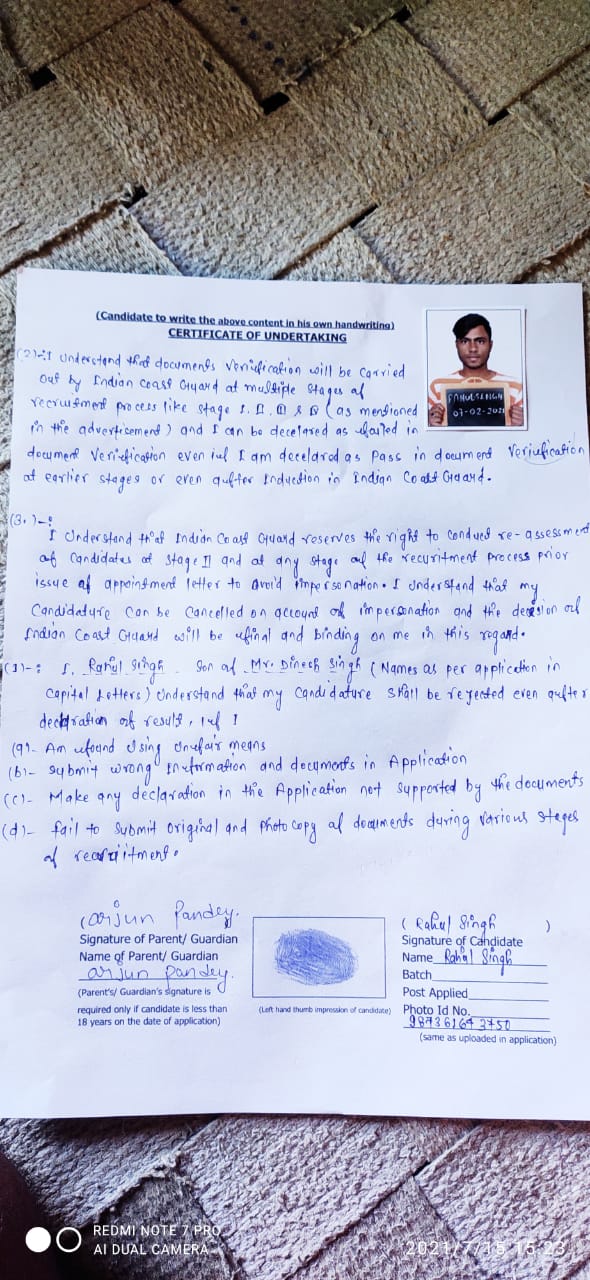 (Candidate to write the above content in his own handwriting)
CERTIFICATE OF UNDERTAKING
RAHUL SINGH
07-02-2021
(2)-: I Understand that documents Veriufication will be Carried
out by Indian Coast Guard at multiple stages of
recruitment process like stage I, II, III & IV (as mentioned
in the advertisement) and I can be decelared as ufailed in
document Veriufication even iuf I am decelared as Pass in document Veriufication
at earlier stages or even aufter Induction in Indian Coast Guard.
(3.)-:
I Understand that Indian Coast Guard reserves the right to conduct re-assessment
of Candidates at Stage II and at any stage ouf the recuritment Process prior
issue of appointment letter to avoid impersonation. I Understand that my
Candidature Can be Cancelled on account of impersonation and the decision ouf
Indian Coast Guard will be ufinal and binding on me in this regard.
(1)-: I, Rahul Singh Son of Mr. Dinesh Singh (Names as per application in
Capital Letters) Understand that my Candidature Shall be rejected even aufter
declaration of result, iuf I
(a)- Am ufound Using Unufair means
(b)- Submit wrong Information and documents in Application
(c)- Make any declaration in the Application not Supported by the documents
(d)- fail to Submit original and Photo copy of documents during various stages
of recruitment.
(arjun Pandey.
Signature of Parent/ Guardian
Name of Parent/ Guardian
arjun pandey.
(Parent's/ Guardian's signature is
required only if candidate is less than
18 years on the date of application)
(Left hand thumb impression of candidate)
( Rahul Singh )
Signature of Candidate
Name Rahul Singh
Batch
Post Applied
Photo Id No.
987361643750
(same as uploaded in application)
REDMI NOTE 7 PRO
AI DUAL CAMERA
2021/7/15 15:23